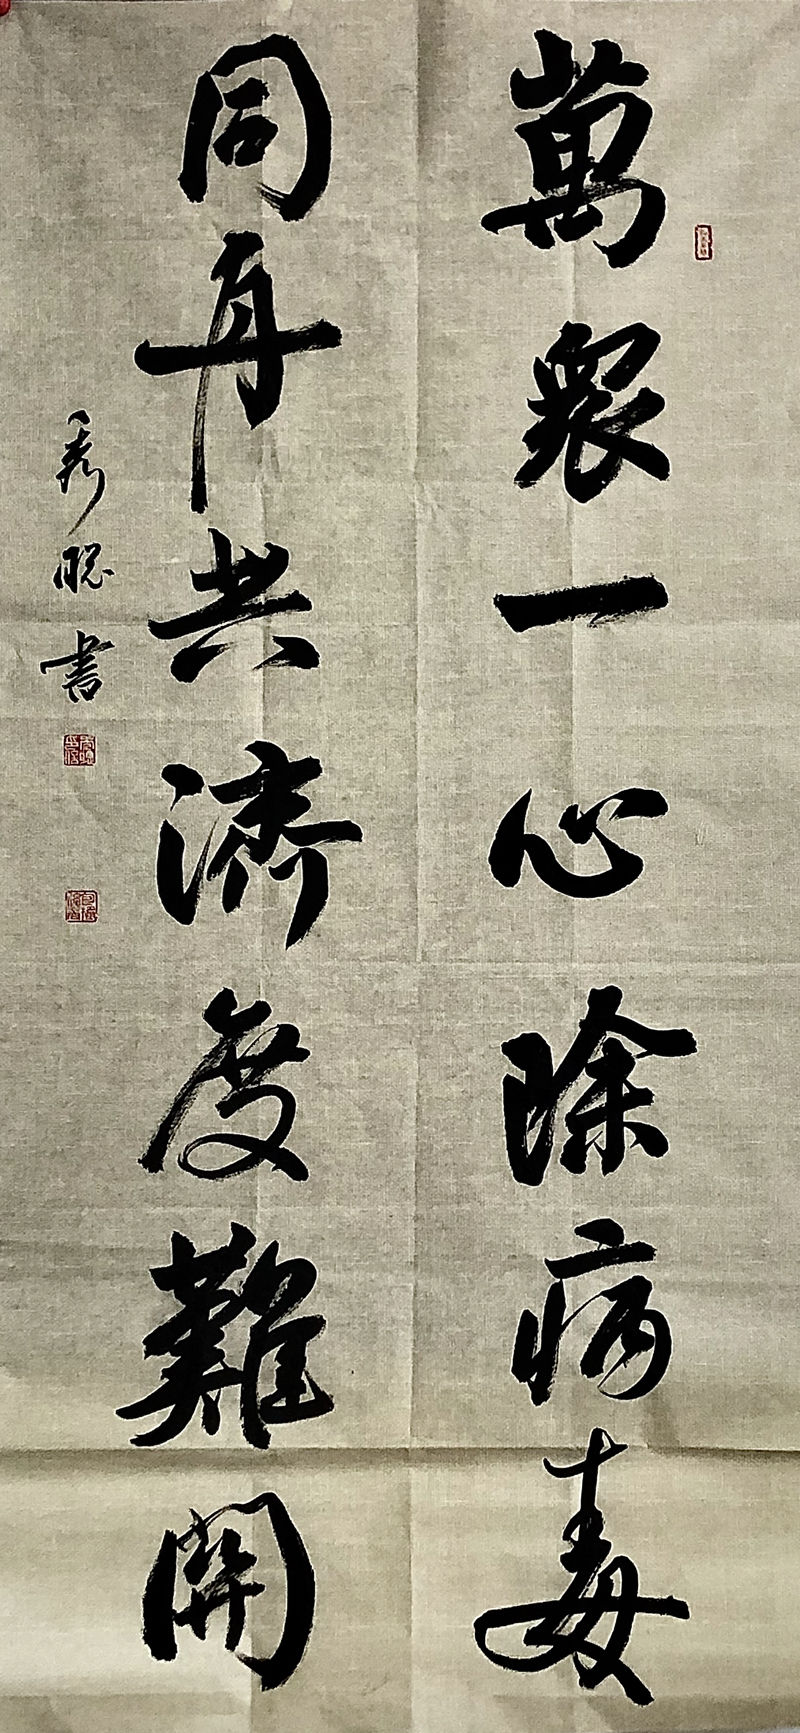 萬衆一心除病毒
同舟共濟度難關
秀聪書